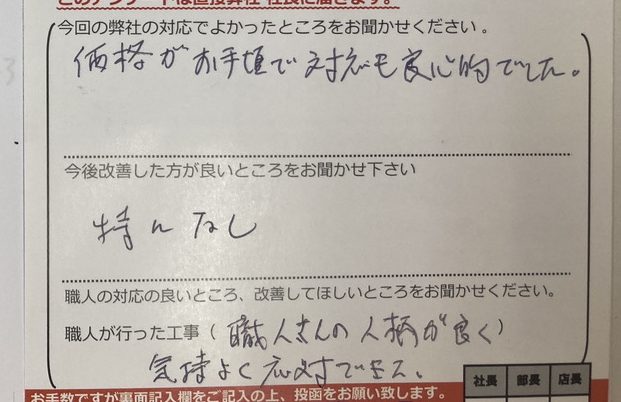 このアンケートは直接弊社 社長に届きます。
今回の弊社の対応でよかったところをお聞かせください。
価格がお手頃で対応も良心的でした。
今後改善した方が良いところをお聞かせ下さい
特になし
職人の対応の良いところ、改善してほしいところをお聞かせください。
職人が行った工事（職人さんの人柄が良く）
気持よく応対できた。
お手数ですが裏面記入欄をご記入の上、投函をお願い致します。
社長 部長 店長